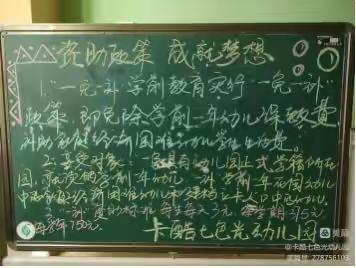 资助政策 成就梦想
1."一免一补"学前教育实行"一免一补"
政策,即免除学前一年幼儿保教费
补助家庭经济困难幼儿学生生活费。
2.享受对象:一免具有幼儿园正式学籍的在
园,学前一年幼儿。一补学前一年在园幼儿
中家庭经济困难幼儿
3.一补 的标准 每生每天3元,每学期375元
每年750元。
卡酷七色光幼儿园
美篇
@卡酷七色光幼儿园
美篇号:278756103